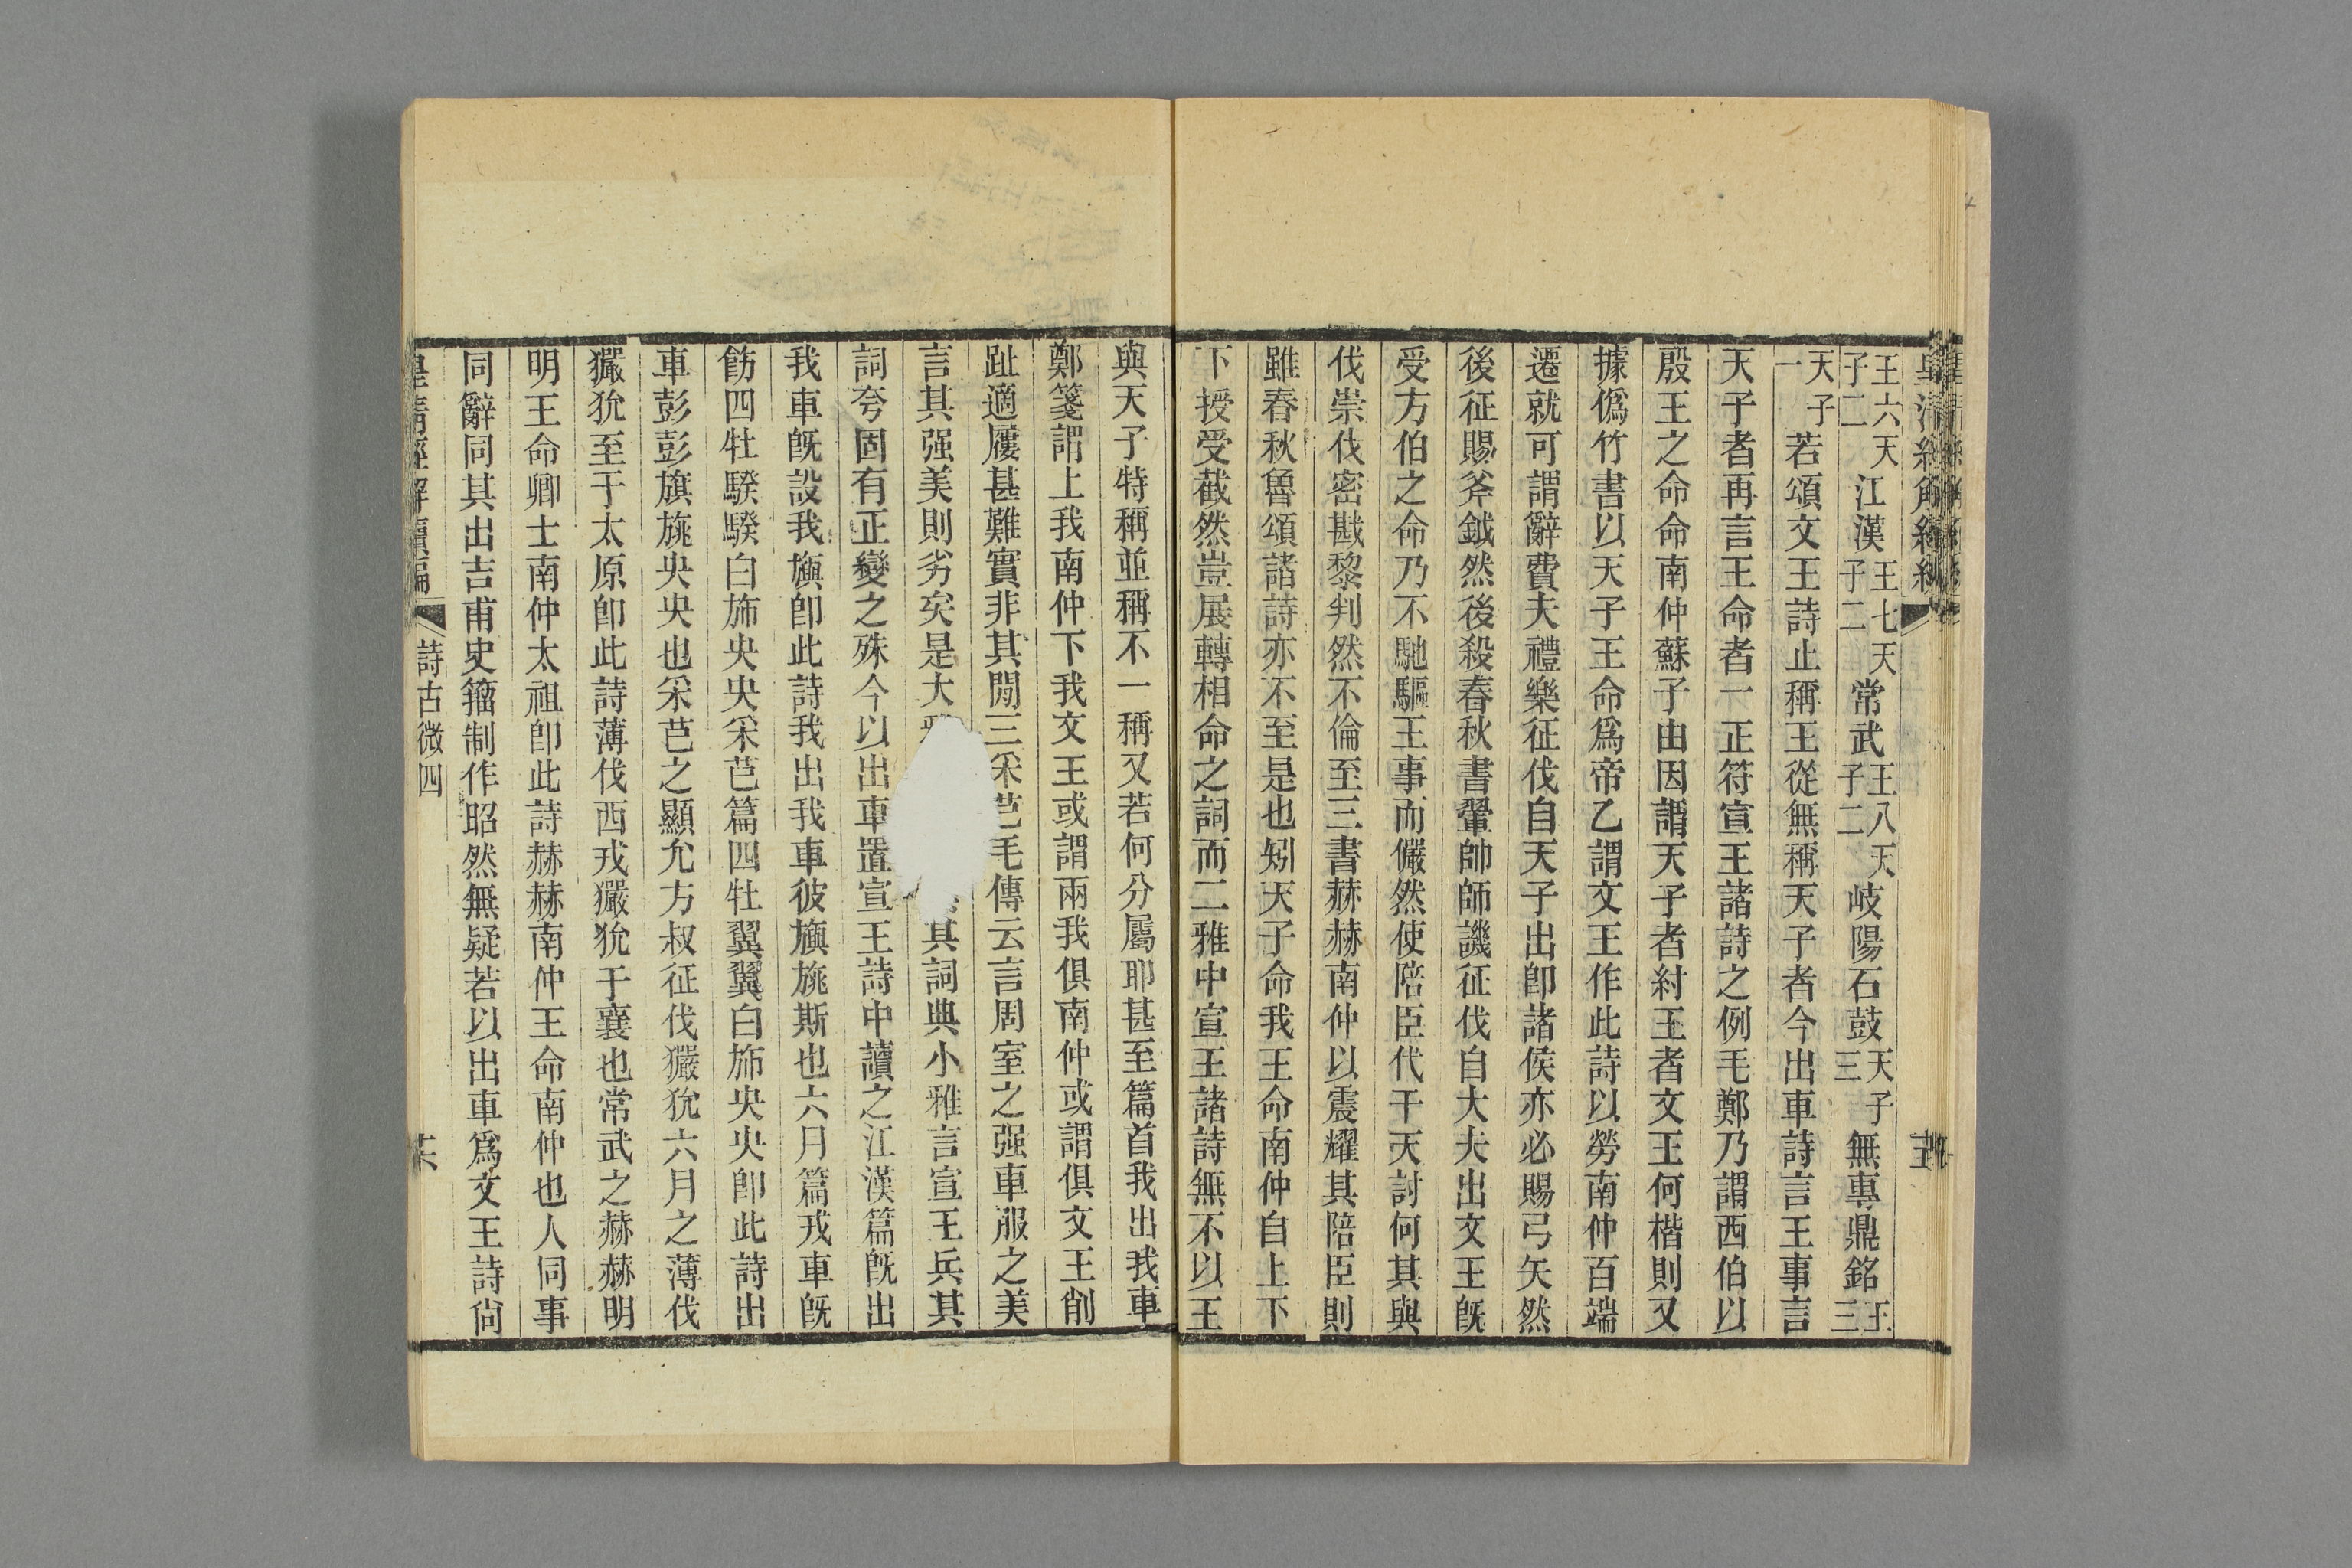 王六天子二江漢王七天子二常武王八天子二岐陽石鼓天子三無專鼎銘王三
天子一若頌文王詩止稱王從無稱天子者今出車詩言王事言
天子者再言王命者一正符宣王諸詩之例毛鄭乃謂西伯以
殷王之命命南仲蘇子由因謂天子者紂王者文王何楷則又
據僞竹書以天子王命爲帝乙謂文王作此詩以勞南仲百端
遷就可謂辭費夫禮樂征伐自天子出卽諸侯亦必賜弓矢然
後征賜斧鉞然後殺春秋書翬帥師譏征伐自大夫出文王旣
受方伯之命乃不馳驅王事而儼然使陪臣代干天討何其與
伐崇伐密戡黎判然不倫至三書赫赫南仲以震耀其陪臣則
雖春秋魯頌諸詩亦不至是也矧天子命我王命南仲自上下
下授受截然豈展轉相命之詞而二雅中宣王諸詩無不以王
與天子特稱並稱不一稱又若何分屬耶甚至篇首我出我車
鄭箋謂上我南仲下我文王或謂兩我俱南仲或謂俱文王削
趾適屨甚難實非其閒三采芑毛傳云言周室之强車服之美
言其强美則劣矣是大其詞典小雅言宣王兵其
詞夸固有正變之殊今以出車置宣王詩中讀之江漢篇旣出
我車旣設我旟卽此詩我出我車彼旟旐斯也六月篇戎車旣
飭四牡騤騤白旆央央采芑篇四牡翼翼白旆央央卽此詩出
車彭彭旗旐央央也采芑之顯允方叔征伐玁狁六月之薄伐
玁狁至于太原卽此詩薄伐西戎玁狁于襄也常武之赫赫明
明王命卿士南仲太祖卽此詩赫赫南仲王命南仲也人同事
同辭同其出吉甫史籀制作昭然無疑若以出車爲文王詩尙
皇清經解續編 詩古微四 六